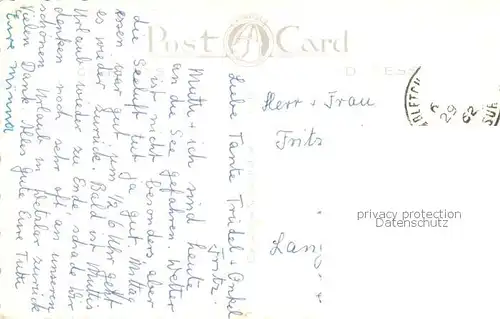 Post Card
Liebe Tante Friedel + Onkel
Fritz.
Mutti + ich sind heute
an die See gefahren. Wetter
ist nicht besonders aber
die Seeluft tut ja gut. Mittag
essen war gut, um ½ 6 Uhr geht
es wieder zurück. Bald ist Muttis
Urlaub wieder zu Ende, schade. Wir
denken noch sehr oft an unseren
schönen Urlaub in Wetzlar zurück
Vielen Dank. Alles Gute Eure Tutti
Eure Minna
Herr + Frau
Fritz
Lang
29
62
privacy protection
Datenschutz